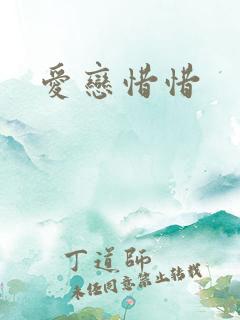 愛戀惜惜
丁道師
未經同意禁止轉載